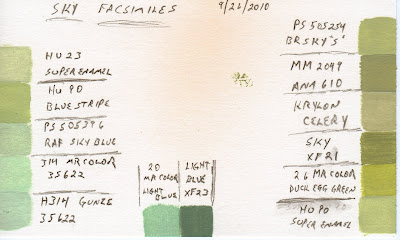 SKY FACSIMILES 9/22/2010
HU 23
SUPER ENAMEL
HU 90
BLUE STRIPE
PS 505396
RAF SKY BLUE
314 MR COLOR
35622
H314 GUNZE
35622
20
MR COLOR
LIGHT
BLUE
LIGHT
BLUE
XF23
PS 505254
BR SKY "S"
MM 2049
ANA 610
KRYLON
CELERY
SKY
XF21
26 MR COLOR
DUCK EGG GREEN
HU 90
SUPER ENAMEL